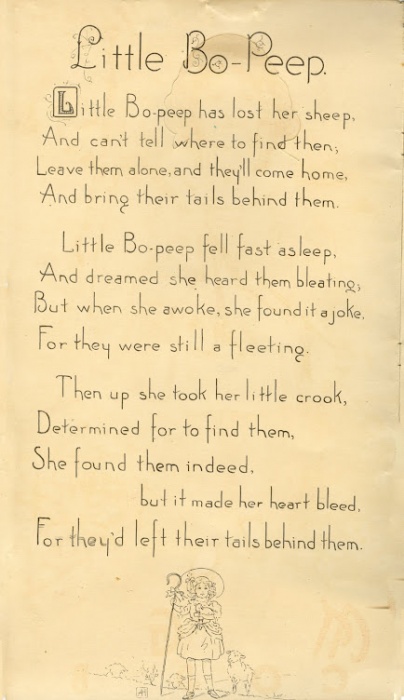 Little Bo-Peep.
Little Bo-peep has lost her sheep,
And can't tell where to find then;
Leave them alone, and they'll come home,
And bring their tails behind them.
Little Bo-peep fell fast asleep,
And dreamed she heard them bleating;
But when she awoke, she found it a joke,
For they were still a fleeting.
Then up she took her little crook,
Determined for to find them,
She found them indeed,
but it made her heart bleed,
For they'd left their tails behind them.